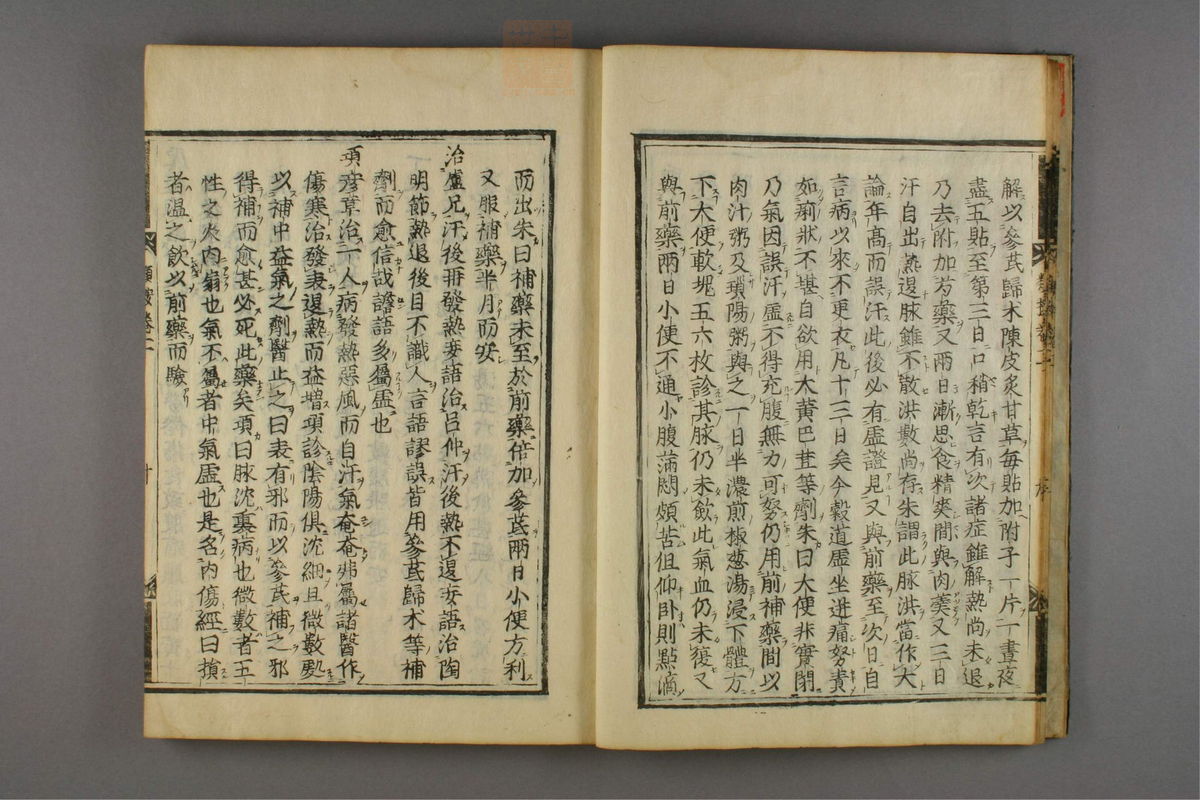 解以參芪歸朮陳皮炙甘草每貼加附子一片一晝夜
盡五貼至第三日口稍乾言有次諸症雖解熱尚未退
乃去附加芍藥又兩日漸思食精爽間與肉羹又三日
汗自出熱退脉雖不散洪數尚存朱謂此脉洪當作大
論年高而誤汗此後必有虛證見又與前藥至次日自
言病以來不更衣凡十三日矣今穀道虛坐迸痛努責
如痢狀不堪自欲用大黃巴荳等劑朱曰大便非實閉
乃氣因誤汗虛不得充腹無力可努仍用前補藥間以
肉汁粥及瑣陽粥與之一日半濃煎椒葱湯浸下體方
下大便軟塊五六枚診其脉仍未斂此氣血仍未復又
與前藥兩日小便不通小腹滿悶頗苦但仰卧則點滴
而出朱曰補藥未至於前藥倍加參芪兩日小便方利
又服補藥半月而安
治盧兄汗後再發熱妄語治呂仲汗後熱不退妄語治陶
明節熱退後目不識人言語謬誤皆用參芪歸朮等補
劑而愈信哉譫語多屬虛也
項彦章治一人病發熱惡風而自汗氣奄奄弗屬諸醫作
傷寒治發表退熱而益增項診陰陽俱沈細且微數處
以補中益氣之劑醫止之曰表有邪而以參芪補之邪
得補而愈甚必死此藥矣項曰脉沈裏病也微數者五
性之火內煽也氣不屬者中氣虛也是名內傷經曰損
者溫之飲以前藥而驗